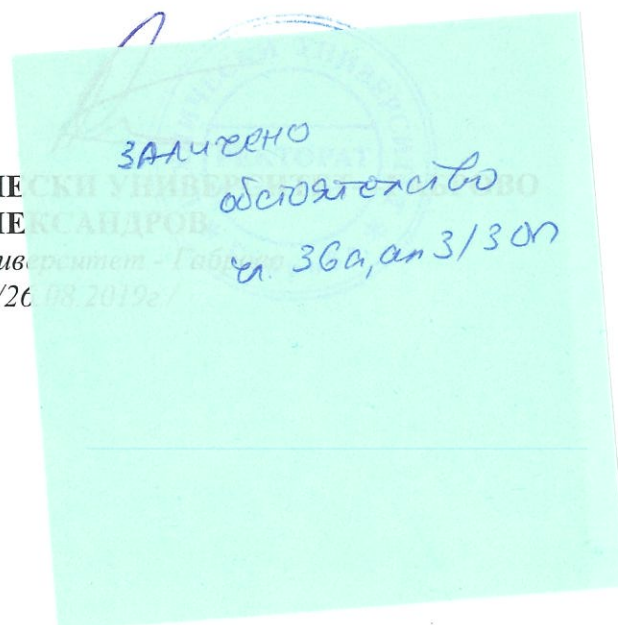 заличено
обстоятелство
чл. 36а, ал 3/ЗОП
ЧЕСКИ УНИВЕРСИТЕТ
ЛЕКСАНДРОВ
иверситет - Габрово
/26.08.2019г/
РЕКТОРАТ